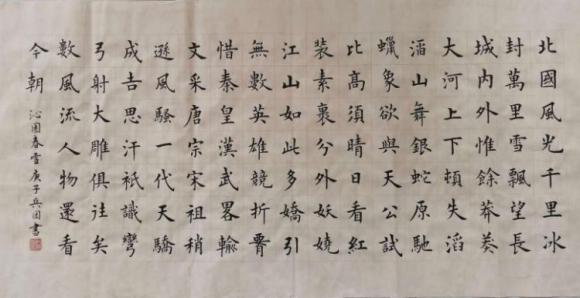 北國風光千里冰
封萬里雪飄望長
城内外惟餘莽莽
大河上下頓失滔
滔山舞銀蛇原馳
蠟象欲與天公試
比高須晴日看紅
裝素裹分外妖嬈
江山如此多嬌引
無數英雄競折腰
惜秦皇漢武畧輸
文采唐宗宋祖稍
遜風騷一代天驕
成吉思汗衹識彎
弓射大雕俱往矣
數風流人物還看
今朝
沁園春雪庚子兵書